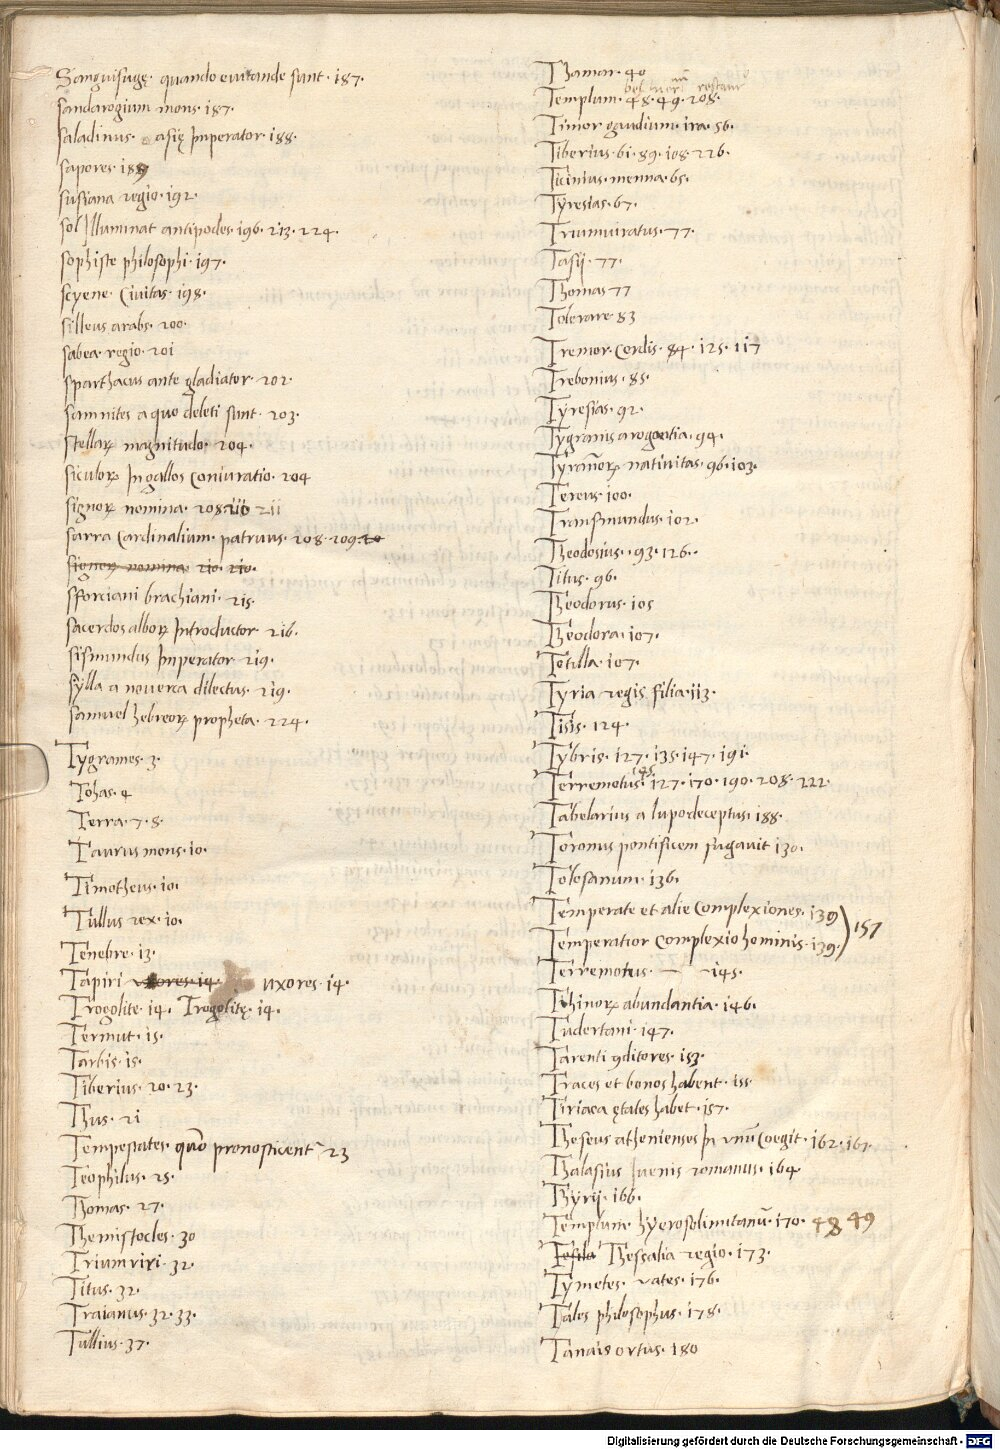 Sanguisugę. quando euitande sunt. 187.
sandarogium mons. 187.
saladinus. asię Imperator. 188.
sapores. 189
susiana regio. 192.
sol Illuminat antipodes. 196. 213. 224.
sophiste philosophi. 197.
scyene. Ciuitas. 198.
silleus arabs. 200.
sabea regio. 201
sparthacus ante gladiator. 202.
samnites a quo deleti sunt. 203.
stellaꝝ magnitudo. 204.
siculoꝝ In gallos Coniuratio. 204
signoꝝ nomina. 208. 211
sarra Cardinalium patruus. 208. 209.
signoꝝ nomina 210. 210.
sforciani brachiani. 215.
sacerdos alboꝝ Introductor. 216.
sismundus Imperator. 219.
sylla a nouerca dilectus. 219.
samuel hebreoꝝ propheta. 224.
Tygrames. 3.
Tohas. 4
Terra. 7. 8.
Taurus mons. 10.
Timotheus. 10.
Tullus rex. 10.
Tenebre. 13.
Tapiri uxores. 14. uxores. 14.
Trogolite. 14. Trogolitę. 14.
Termut. 15.
Tarbis. 15.
Tiberius. 20. 23.
Thus. 21
Tempestates. quō pronosticent~ 23
Teophilus. 25.
Thomas. 27.
Themistocles. 30
Triumviri. 32.
Titus. 32.
Traianus. 32. 33.
Tullius. 37.
Thamar. 40
Templum. 48. 49. 208.
Timor gaudium. ira. 56.
Tiberius. 61. 89. 108. 226.
Ticinius. menna. 65.
Tyresias. 67.
Triumuiratus. 77.
Tasij. 77.
Thomas 77
Tolerare 83
Tremor. Cordis. 84. 125. 117
Trebonius. 85.
Tyresias. 92.
Tygranis arogantia. 94.
Tyrānoꝝ natiuitas. 96. 103.
Tereus. 100.
Transmundus. 102.
Theodosius. 93. 126.
Titus. 96.
Theodorus. 105
Theodora. 107.
Totilla. 107.
Tyria regis filia. 113.
Tisis. 124.
Tybris. 127. 135. 147. 191.
Terremotus. 127. 170. 190. 208. 222
Tabelarius a lupo deceptus. 188.
Toronus pontificem fugauit 130.
Tolosanum. 136.
Temperate et alie Complexiones. 139
Temperatior Complexio hominis. 139. ) 157
Terremotus. — 145.
Thinoꝝ abundantia. 146.
Tudertani. 147.
Tarenti ꝯditores. 153.
Traces et bonos habent. 155
Tiriaca ętates habet. 157.
Theseus athenienses In vnū Coegit. 162. 161.
Thalasius Iuenis romanus. 164
Thyrij. 166.
Templum. hyerosolimitanū. 170. 48 49
Tesila Thessalia regio. 173.
Tymetes. vates. 176.
Tales philosophus. 178.
Tanais ortus. 180
Digitalisierung gefördert durch die Deutsche Forschungsgemeinschaft - DFG